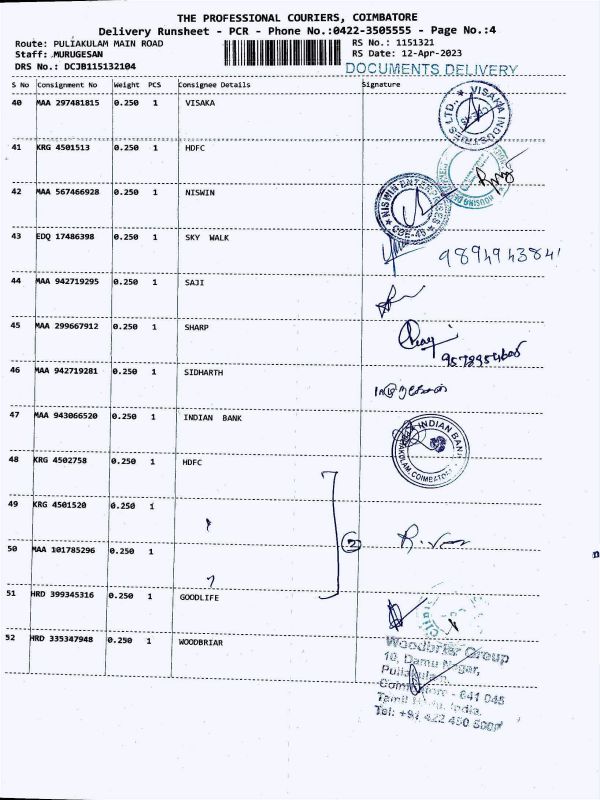 THE PROFESSIONAL COURIERS, COIMBATORE
Delivery Runsheet - PCR - Phone No.:0422-3505555 - Page No.:4
Route: PULIAKULAM MAIN ROAD RS No.: 1151321
Staff: MURUGESAN RS Date: 12-Apr-2023
DRS No.: DCJB115132104 DOCUMENTS DELIVERY
S No Consignment No Weight PCS Consignee Details Signature
40 MAA 297481815 0.250 1 VISAKA
VISAKA INDUSTRIES LTD.,
41 KRG 4501513 0.250 1 HDFC
42 MAA 567466928 0.250 1 NISWIN
NISWIN ENTERPRISES
CBE-45
43 EDQ 17486398 0.250 1 SKY WALK
9894943841
44 MAA 942719295 0.250 1 SAJI
45 MAA 299667912 0.250 1 SHARP
46 MAA 942719281 0.250 1 SIDHARTH
47 MAA 943066520 0.250 1 INDIAN BANK
INDIAN BANK
COIMBATORE
48 KRG 4502758 0.250 1 HDFC
49 KRG 4501520 0.250 1
50 MAA 101785296 0.250 1
51 HRD 399345316 0.250 1 GOODLIFE
52 HRD 335347948 0.250 1 WOODBRIAR
Woodbriar Group
10, Damu Nagar,
Puliakulam,
Coimbatore - 641 045
Tamil Nadu, India.
Tel: +91 422 450 5000